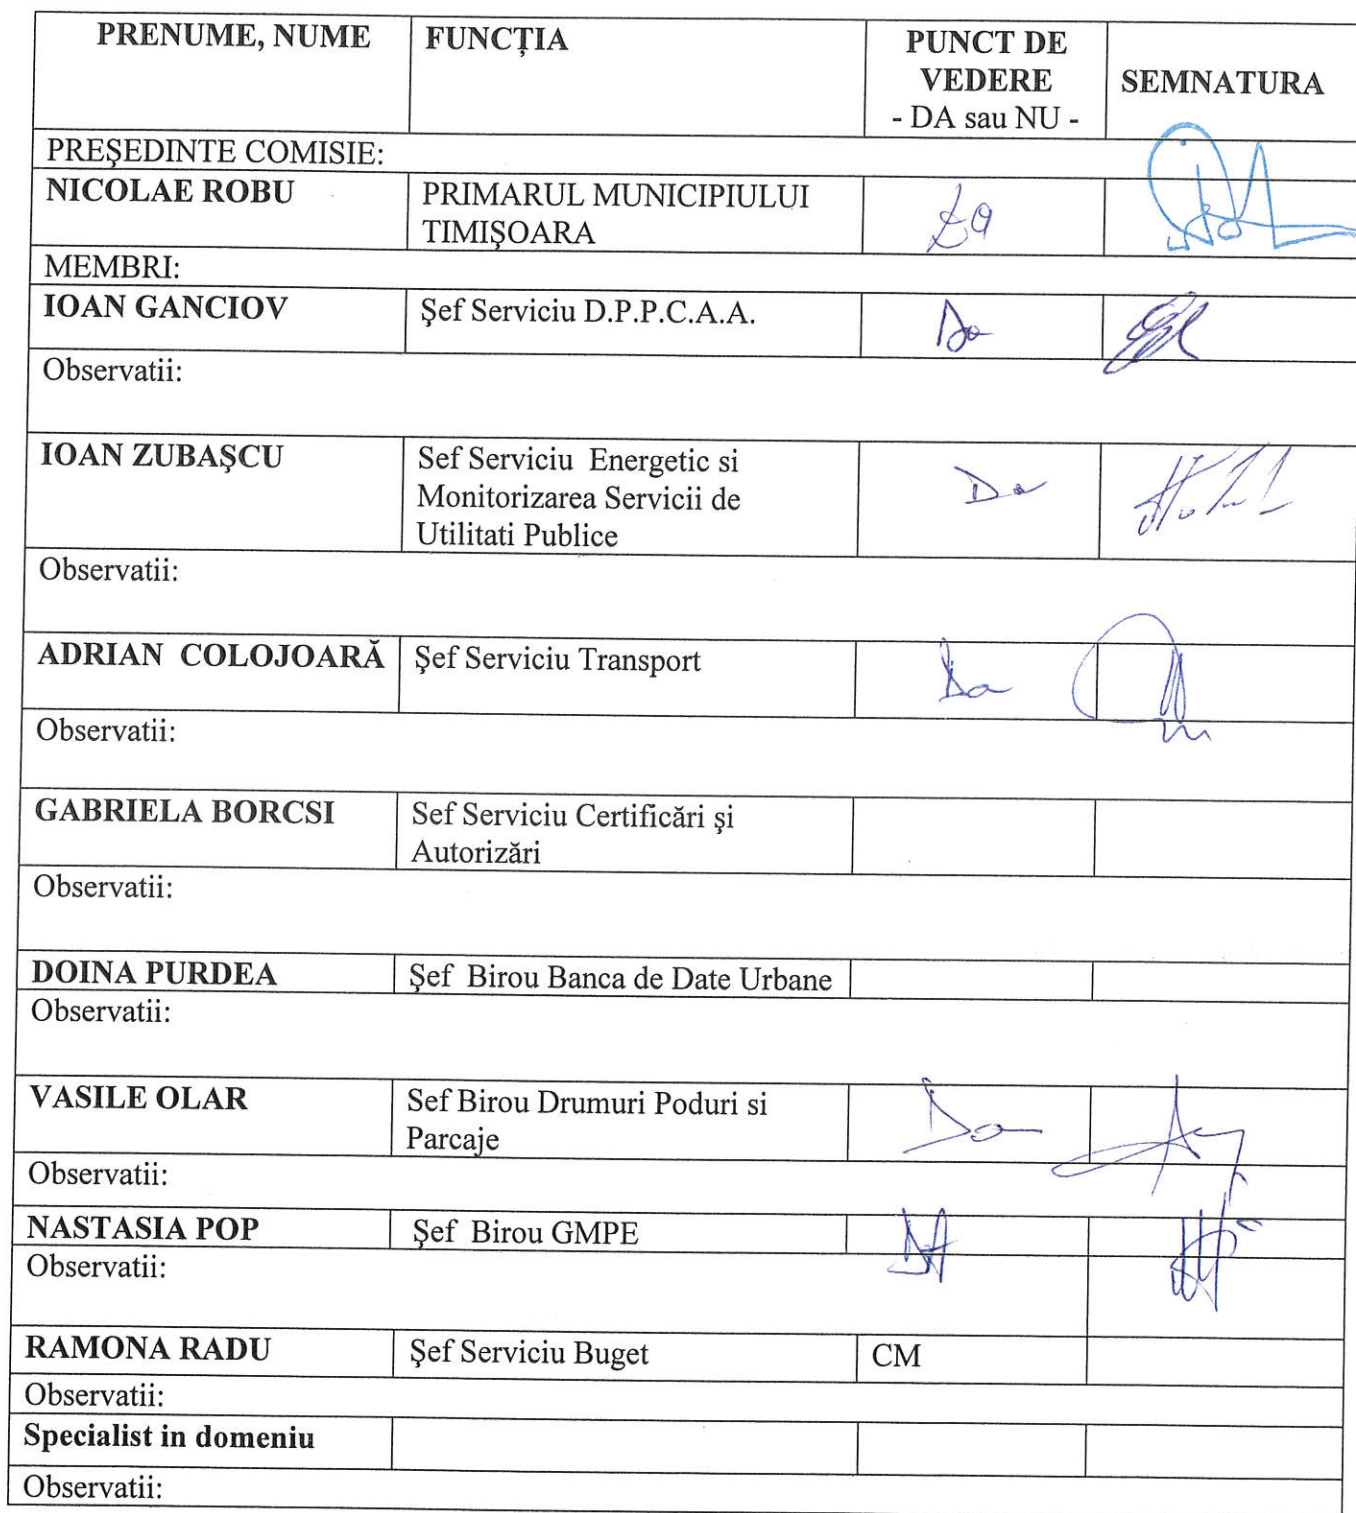 PRENUME, NUME
FUNCȚIA
PUNCT DE
VEDERE
- DA sau NU -
SEMNATURA
PREŞEDINTE COMISIE:
NICOLAE ROBU
PRIMARUL MUNICIPIULUI
TIMIŞOARA
Da
MEMBRI:
IOAN GANCIOV
Şef Serviciu D.P.P.C.A.A.
Da
Observatii:
IOAN ZUBAŞCU
Sef Serviciu Energetic si
Monitorizarea Servicii de
Utilitati Publice
Da
Observatii:
ADRIAN COLOJOARĂ
Şef Serviciu Transport
Da
Observatii:
GABRIELA BORCSI
Sef Serviciu Certificări şi
Autorizări
Observatii:
DOINA PURDEA
Şef Birou Banca de Date Urbane
Observatii:
VASILE OLAR
Sef Birou Drumuri Poduri si
Parcaje
Da
Observatii:
NASTASIA POP
Şef Birou GMPE
DA
Observatii:
RAMONA RADU
Şef Serviciu Buget
CM
Observatii:
Specialist in domeniu
Observatii: